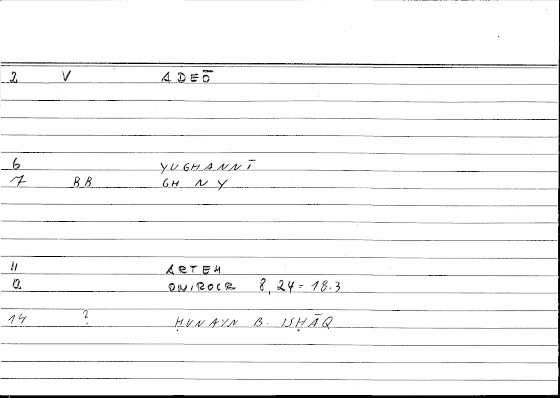 2 V ADEŌ
6 YUGHANNĪ
7 BB GH N Y
11 ARTEM
12 ONIROCR 8, 24 = 18.3
14 ? ḤUNAYN B. ISḤĀQ